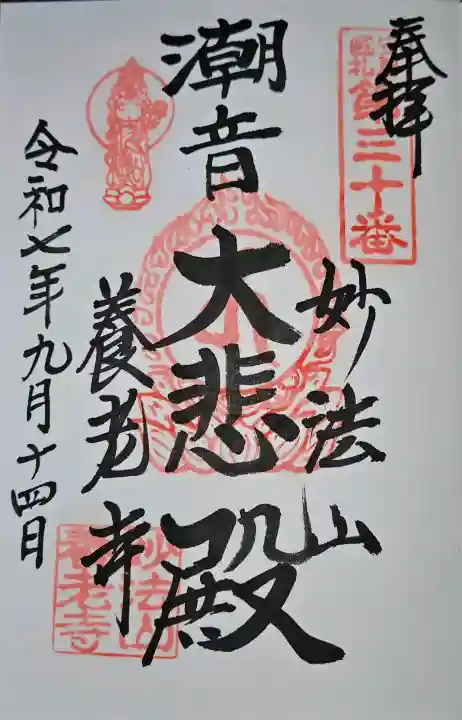 奉拝
第三十番
妙法山
潮音
大悲殿
養老寺
令和七年九月十四日
妙法山
養老寺